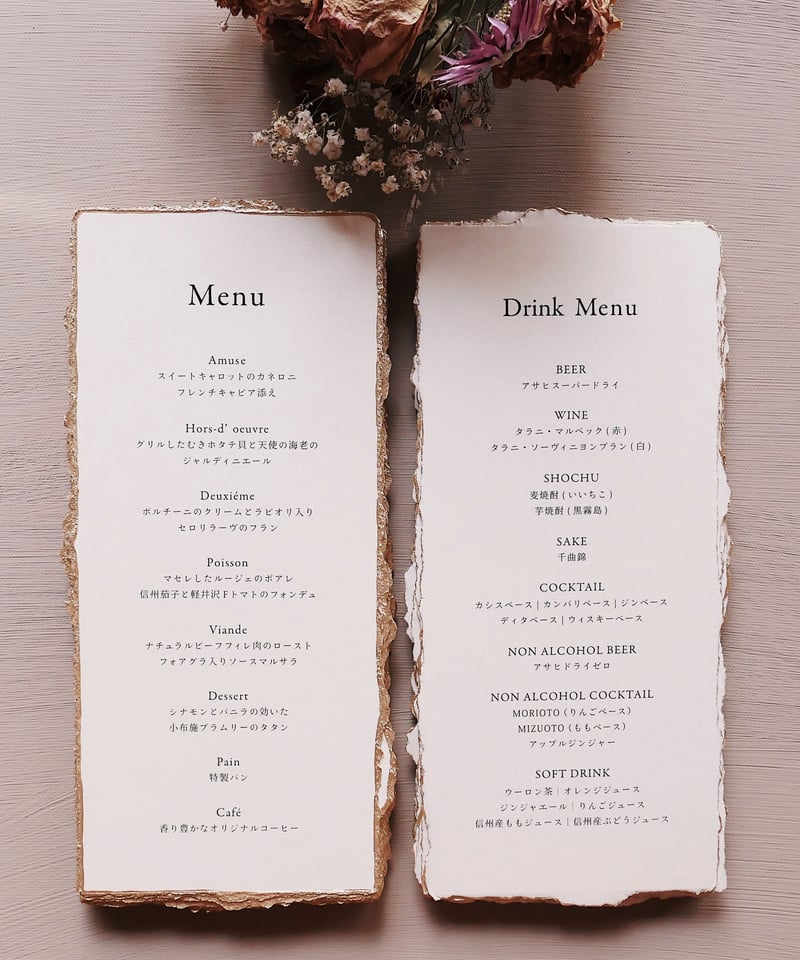 Menu
Amuse
スイートキャロットのカネロニ
フレンチキャビア添え
Hors-d' oeuvre
グリルしたむきホタテ貝と天使の海老の
ジャルディニエール
Deuxiéme
ポルチーニのクリームとラビオリ入り
セロリラーヴのフラン
Poisson
マセレしたルージェのポアレ
信州茄子と軽井沢Fトマトのフォンデュ
Viande
ナチュラルビーフフィレ肉のロースト
フォアグラ入りソースマルサラ
Dessert
シナモンとバニラの効いた
小布施ブラムリーのタタン
Pain
特製パン
Café
香り豊かなオリジナルコーヒー
Drink Menu
BEER
アサヒスーパードライ
WINE
タラニ・マルベック(赤)
タラニ・ソーヴィニヨンブラン(白)
SHOCHU
麦焼酎(いいちこ)
芋焼酎(黒霧島)
SAKE
千曲錦
COCKTAIL
カシスベース | カンパリベース | ジンベース
ディタベース | ウィスキーベース
NON ALCOHOL BEER
アサヒドライゼロ
NON ALCOHOL COCKTAIL
MORIOTO(りんごベース)
MIZUOTO(ももベース)
アップルジンジャー
SOFT DRINK
ウーロン茶 | オレンジジュース
ジンジャエール | りんごジュース
信州産ももジュース | 信州産ぶどうジュース